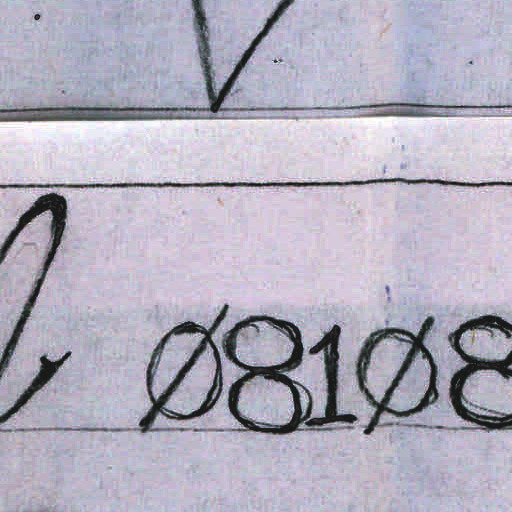 Ø81Ø8